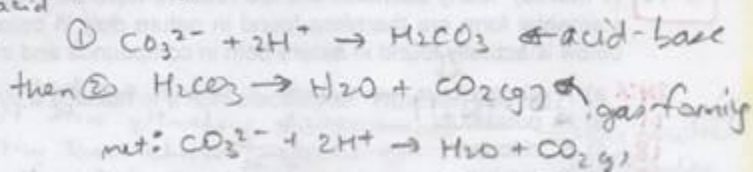 acid
① CO₃²⁻ + 2H⁺ → H₂CO₃ ← acid-base
then ② H₂CO₃ → H₂O + CO₂(g) ← gas forming
net: CO₃²⁻ + 2H⁺ → H₂O + CO₂(g)